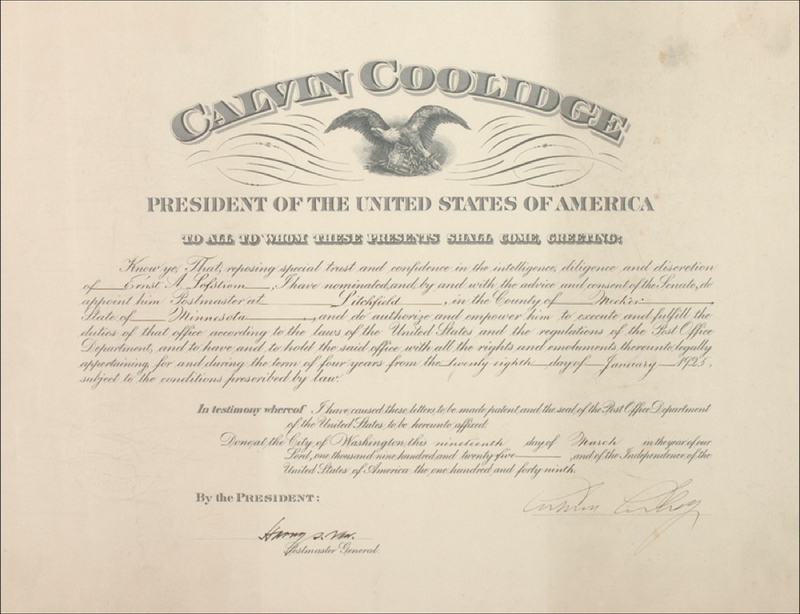 CALVIN COOLIDGE
PRESIDENT OF THE UNITED STATES OF AMERICA
TO ALL TO WHOM THESE PRESENTS SHALL COME, GREETING:
Know ye, That, reposing special trust and confidence in the intelligence, diligence and discretion
of Ernst A Lofstrom, I have nominated, and, by and with the advice and consent of the Senate, do
appoint him Postmaster at Litchfield, in the County of Meeker
State of Minnesota, and do authorize and empower him to execute and fulfill the
duties of that office according to the laws of the United States and the regulations of the Post Office
Department, and to have and to hold the said office with all the rights and emoluments thereunto legally
appertaining, for and during the term of four years from the twenty eighth day of January 1925,
subject to the conditions prescribed by law.
In testimony whereof I have caused these letters to be made patent, and the seal of the Post Office Department
of the United States, to be hereunto affixed.
Done, at the City of Washington, this nineteenth day of March in the year of our
Lord, one thousand nine hundred and twenty-five, and of the Independence of the
United States of America the one hundred and forty ninth.
By the PRESIDENT:
Harry S.
Postmaster General.